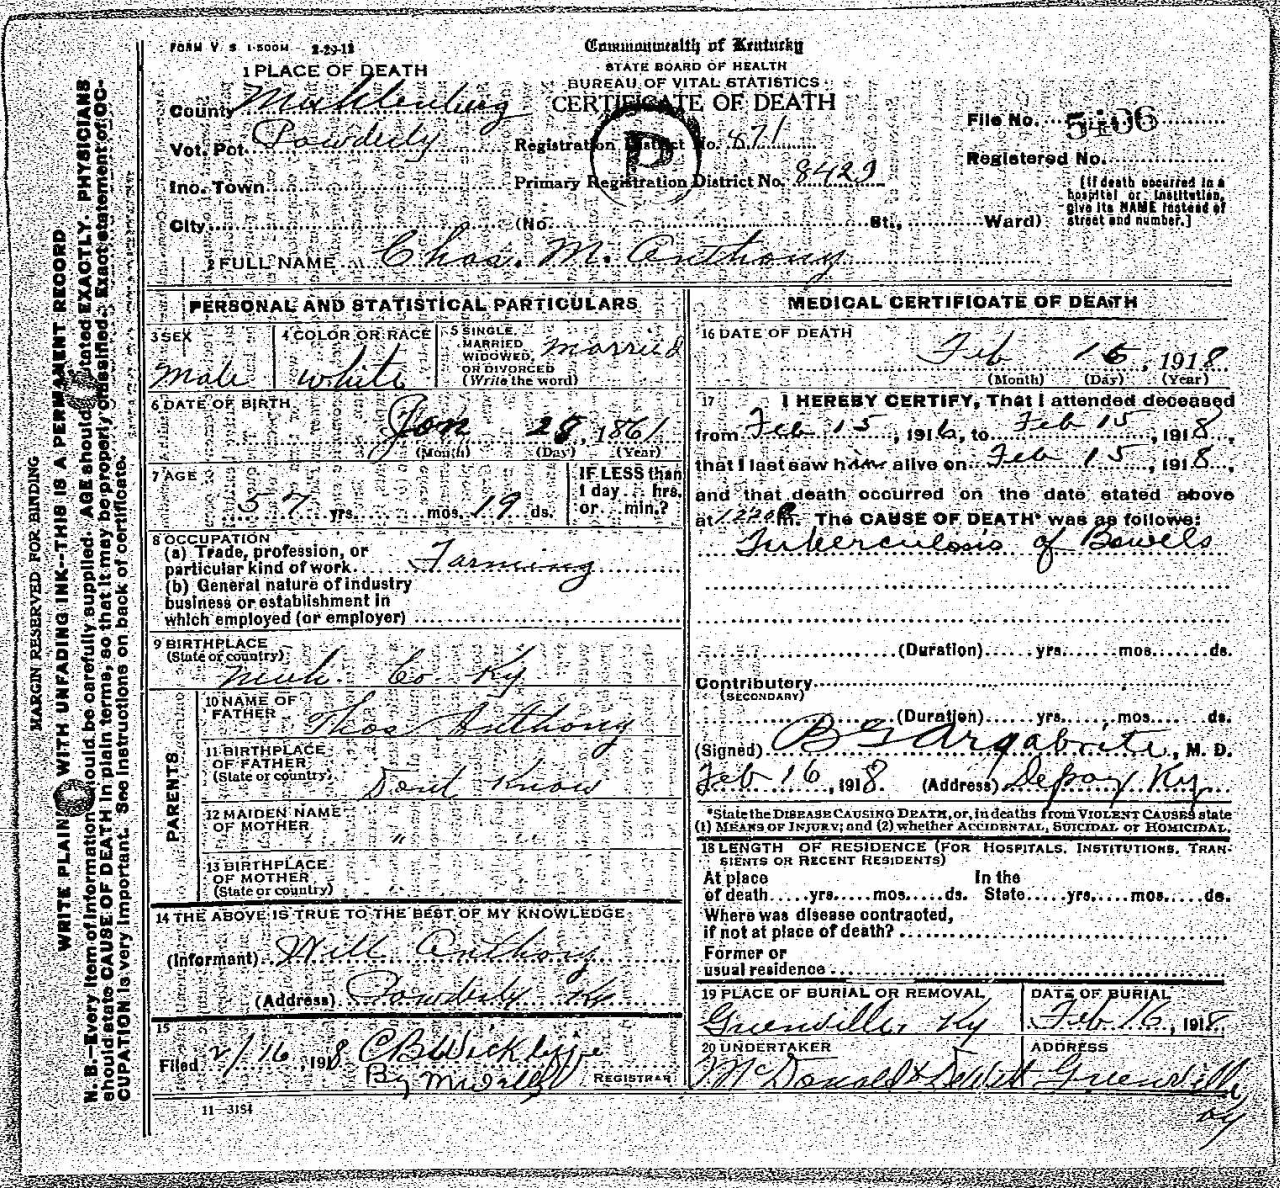 FORM V. S 1-500M 2-29-12
Commonwealth of Kentucky
STATE BOARD OF HEALTH
BUREAU OF VITAL STATISTICS
CERTIFICATE OF DEATH
1 PLACE OF DEATH
County Muhlenberg
Vot. Pct. Powderly
Registration District No. 871
File No. 5406
Inc. Town
Primary Registration District No. 8429
Registered No.
City (No. St., Ward)
[If death occurred in a hospital or institution, give its NAME instead of street and number.]
P
2 FULL NAME Chas. M. Anthony
PERSONAL AND STATISTICAL PARTICULARS
3 SEX Male
4 COLOR OR RACE White
5 SINGLE, MARRIED WIDOWED, OR DIVORCED (Write the word) Married
6 DATE OF BIRTH Jan 28, 1861
(Month) (Day) (Year)
7 AGE 57 yrs. mos. 19 ds.
IF LESS than 1 day hrs. or min.?
8 OCCUPATION
(a) Trade, profession, or
particular kind of work Farming
(b) General nature of industry
business or establishment in
which employed (or employer)
9 BIRTHPLACE
(State or country) Muh. Co Ky
PARENTS
10 NAME OF FATHER Thos Anthony
11 BIRTHPLACE OF FATHER (State or country) Dont Know
12 MAIDEN NAME OF MOTHER "  "
13 BIRTHPLACE OF MOTHER (State or country)
14 THE ABOVE IS TRUE TO THE BEST OF MY KNOWLEDGE
(Informant) Will Anthony
(Address) Powderly Ky
15
Filed 2/16, 1918 C B Wickliffe
By
REGISTRAR
11—3184
MEDICAL CERTIFICATE OF DEATH
16 DATE OF DEATH
Feb 15, 1918
(Month) (Day) (Year)
17 I HEREBY CERTIFY, That I attended deceased
from Feb 15, 1916, to Feb 15, 1918,
that I last saw him alive on Feb 15, 1918,
and that death occurred on the date stated above
at 1220 P m. The CAUSE OF DEATH* was as follows:
Tuberculosis of Bowels
(Duration) yrs. mos. ds.
Contributory
(SECONDARY)
(Duration) yrs. mos. ds.
(Signed) B G Argabrite, M. D.
Feb 16, 1918 (Address) Depoy Ky.
*State the DISEASE CAUSING DEATH, or, in deaths from VIOLENT CAUSES state
(1) MEANS OF INJURY; and (2) whether ACCIDENTAL, SUICIDAL or HOMICIDAL.
18 LENGTH OF RESIDENCE (FOR HOSPITALS, INSTITUTIONS, TRAN-
SIENTS OR RECENT RESIDENTS)
At place In the
of death yrs. mos. ds. State yrs. mos. ds.
Where was disease contracted,
if not at place of death?
Former or
usual residence
19 PLACE OF BURIAL OR REMOVAL
Greenville, Ky
DATE OF BURIAL
Feb 16, 1918
20 UNDERTAKER
McDonald & Dewitt
ADDRESS
Greenville
Ky
MARGIN RESERVED FOR BINDING
WRITE PLAIN WITH UNFADING INK--THIS IS A PERMANENT RECORD
N. B.—Every item of information should be carefully supplied. AGE should stated EXACTLY. PHYSICIANS
should state CAUSE OF DEATH in plain terms, so that it may be properly classified. Exact statement of OC-
CUPATION is very important. See instructions on back of certificate.